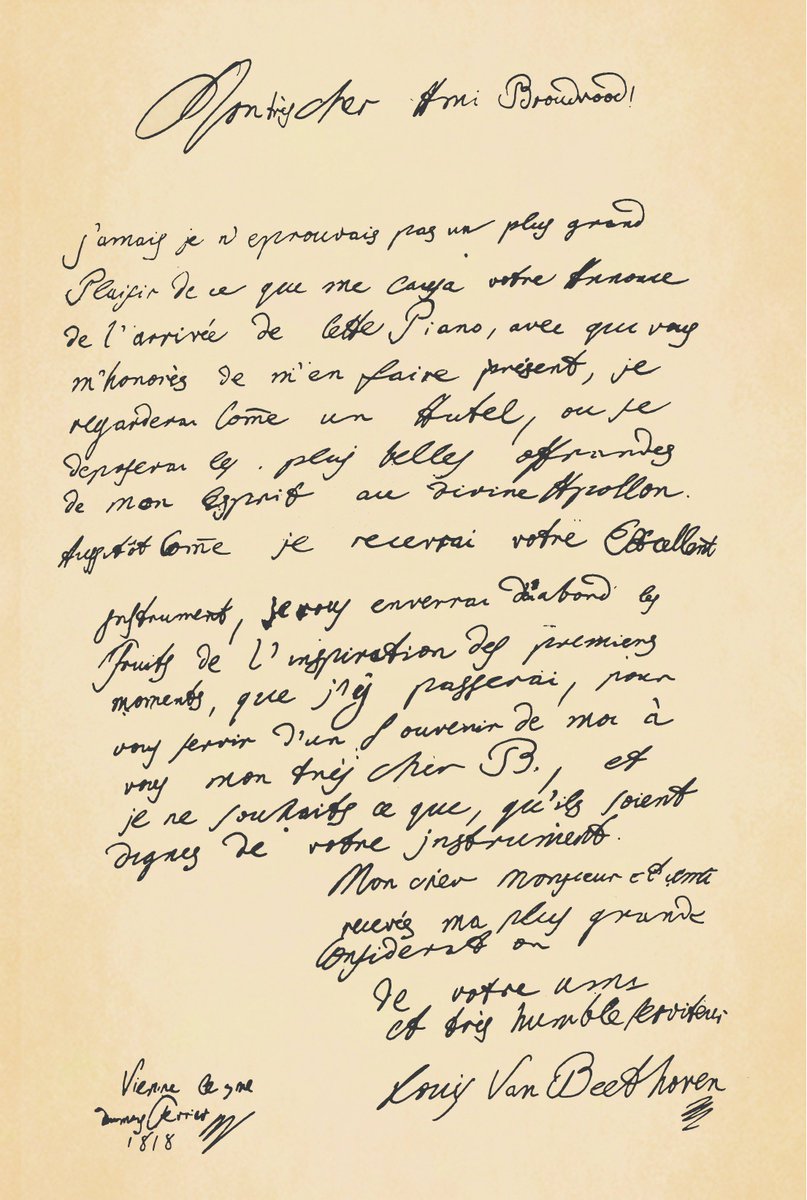 Mon très cher Ami Broudvood!
j'amais je n'eprouvais pas un plus grand
Plaisir de ce que me causa votre Annonce
de l'arrivée de Cette Piano, avec qui vous
m'honorès de m'en faire présent, je
regarderai Come un Autel, ou je
deposerai les plus belles offrandes
de mon Esprit au divine Apollon.
Aussitôt Come je recevrai votre Excellent
jnstrument, je vous enverrai d'abord les
Fruits de l'inspiration des premiers
moments, que j'y passerai, pour
vous servir d'un Souvenir de moi à
vous mon très cher B., et
je ne souhaits ce que, qu'ils soient
dignes de votre jnstrument.
Mon cher Monsieur et ami
recevés ma plus grande
Consideration
de votre ami
et très humble serviteur
Louis Van Beethoven
Vienne le
du mois Fevrier
1818